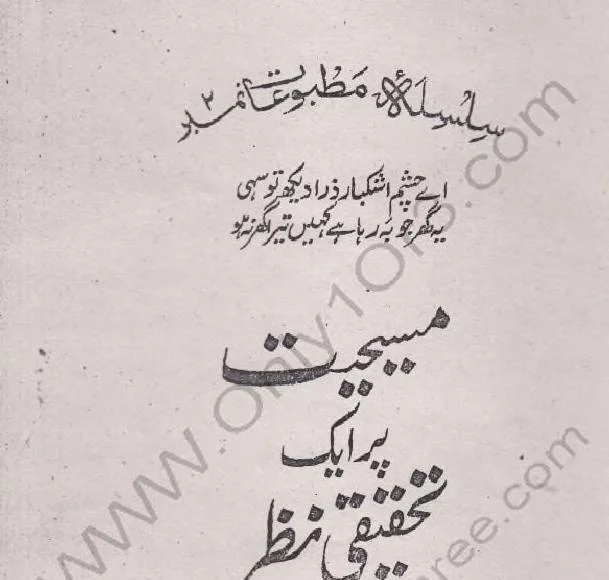 سلسلۂ مطبوعات نمبر ۳
اے چشم اشکبار ذرا دیکھ تو سہی
یہ گھر جو بہ رہا ہے کہیں تیرا گھر نہ ہو
مسیحیت
پر ایک
تحقیقی نظر
www.Only1Or3.com
ree.com